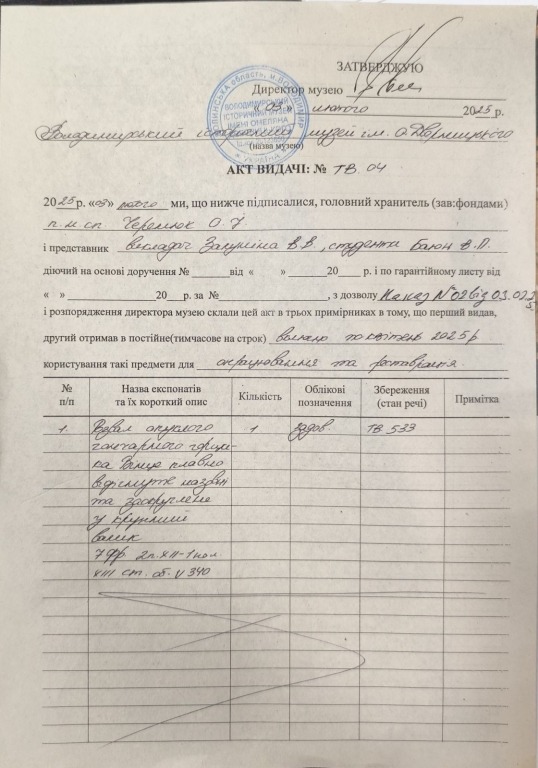 ЗАТВЕРДЖУЮ
Директор музею
« 03 » лютого 2025 р.
ВОЛОДИМИРСЬКИЙ
ІСТОРИЧНИЙ МУЗЕЙ
ІМЕНІ ОМЕЛЯНА
Володимирський історичний музей ім. О. Дверницького
(назва музею)
АКТ ВИДАЧІ: № ТВ. 04
2025 р. «03» лютого ми, що нижче підписалися, головний хранитель (зав:фондами)
О.
і представник викладач В.В., студентки В.
діючий на основі доручення № від « » 20 р. і по гарантійному листу від
« » 20 р. за № , з дозволу Наказ №02 від 03.02.25
і розпорядження директора музею склали цей акт в трьох примірниках в тому, що перший видав,
другий отримав в постійне(тимчасове на строк) по квітень 2025р
користування такі предмети для опрацювання та реставрація.
№ п/п Назва експонатів та їх короткий опис Кількість Облікові позначення Збереження (стан речі) Примітка
1. Розвал округлого 1 задов. ТВ 533
гончарного горщи-
ка Вінця плавно
відігнуте назовні
та заокруглене
у круглий
валик
7 фр. 2п. XII-1пол.
XIII ст. об. V 340